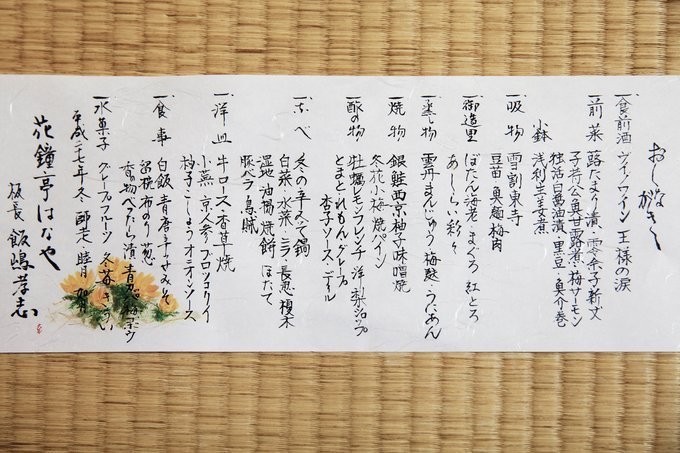 おしながき
一、食前酒 ツヴァイワイン 王様の涙
一、前菜 蕗たまり漬、零余子新丈
子持公魚甘露煮・梅サーモン
独活白醤油漬 黒豆 魚介巻
小鉢 浅利生姜煮
一、吸物 雪割東寺
豆苗 魚麺 梅肉
一、御造里 ぼたん海老 まぐろ 紅とろ
あしらい彩々
一、蒸し物 雲丹まんじゅう 梅麩 うにあん
一、焼物 銀鮭西京柚子味噌焼
冬花小梅 焼パイン
一、酢の物 牡蠣レモンフレンチ 洋梨シロップ
とまと れもん グレープ
杏子ソース・ディル
一、なべ 冬の辛みそ鍋
白菜 水菜 ニラ 長葱 榎木
湿地 油揚 焼餅 ほたて
豚バラ 鳥団子
一、洋皿 牛ロース香草焼
小蕪 京人参 ブロッコリイ
柚子こしょうオニオンソース
一、食事 白飯 青唐辛子みそ
留椀 布のり 葱
香の物 べったら漬 青
一、水菓子 グレープフルーツ
平成二七年 冬 師走 睦月
花鐘亭はなや
板長 飯嶋孝志